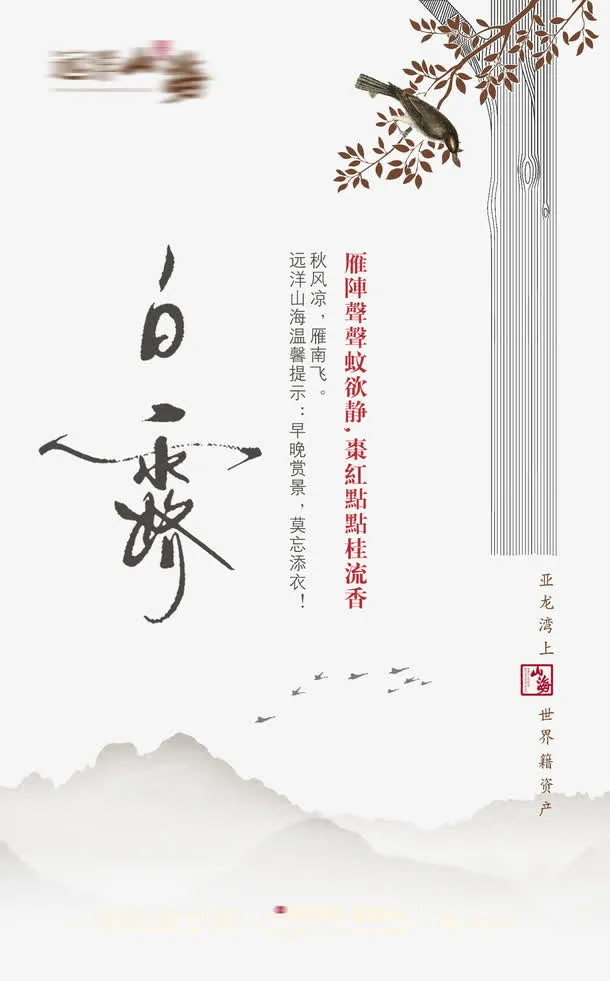 雁陣聲聲蚊欲静,棗紅點點桂流香
秋风凉，雁南飞。
远洋山海温馨提示：早晚赏景，莫忘添衣！
白露
亚龙湾上
山海
世界籍资产